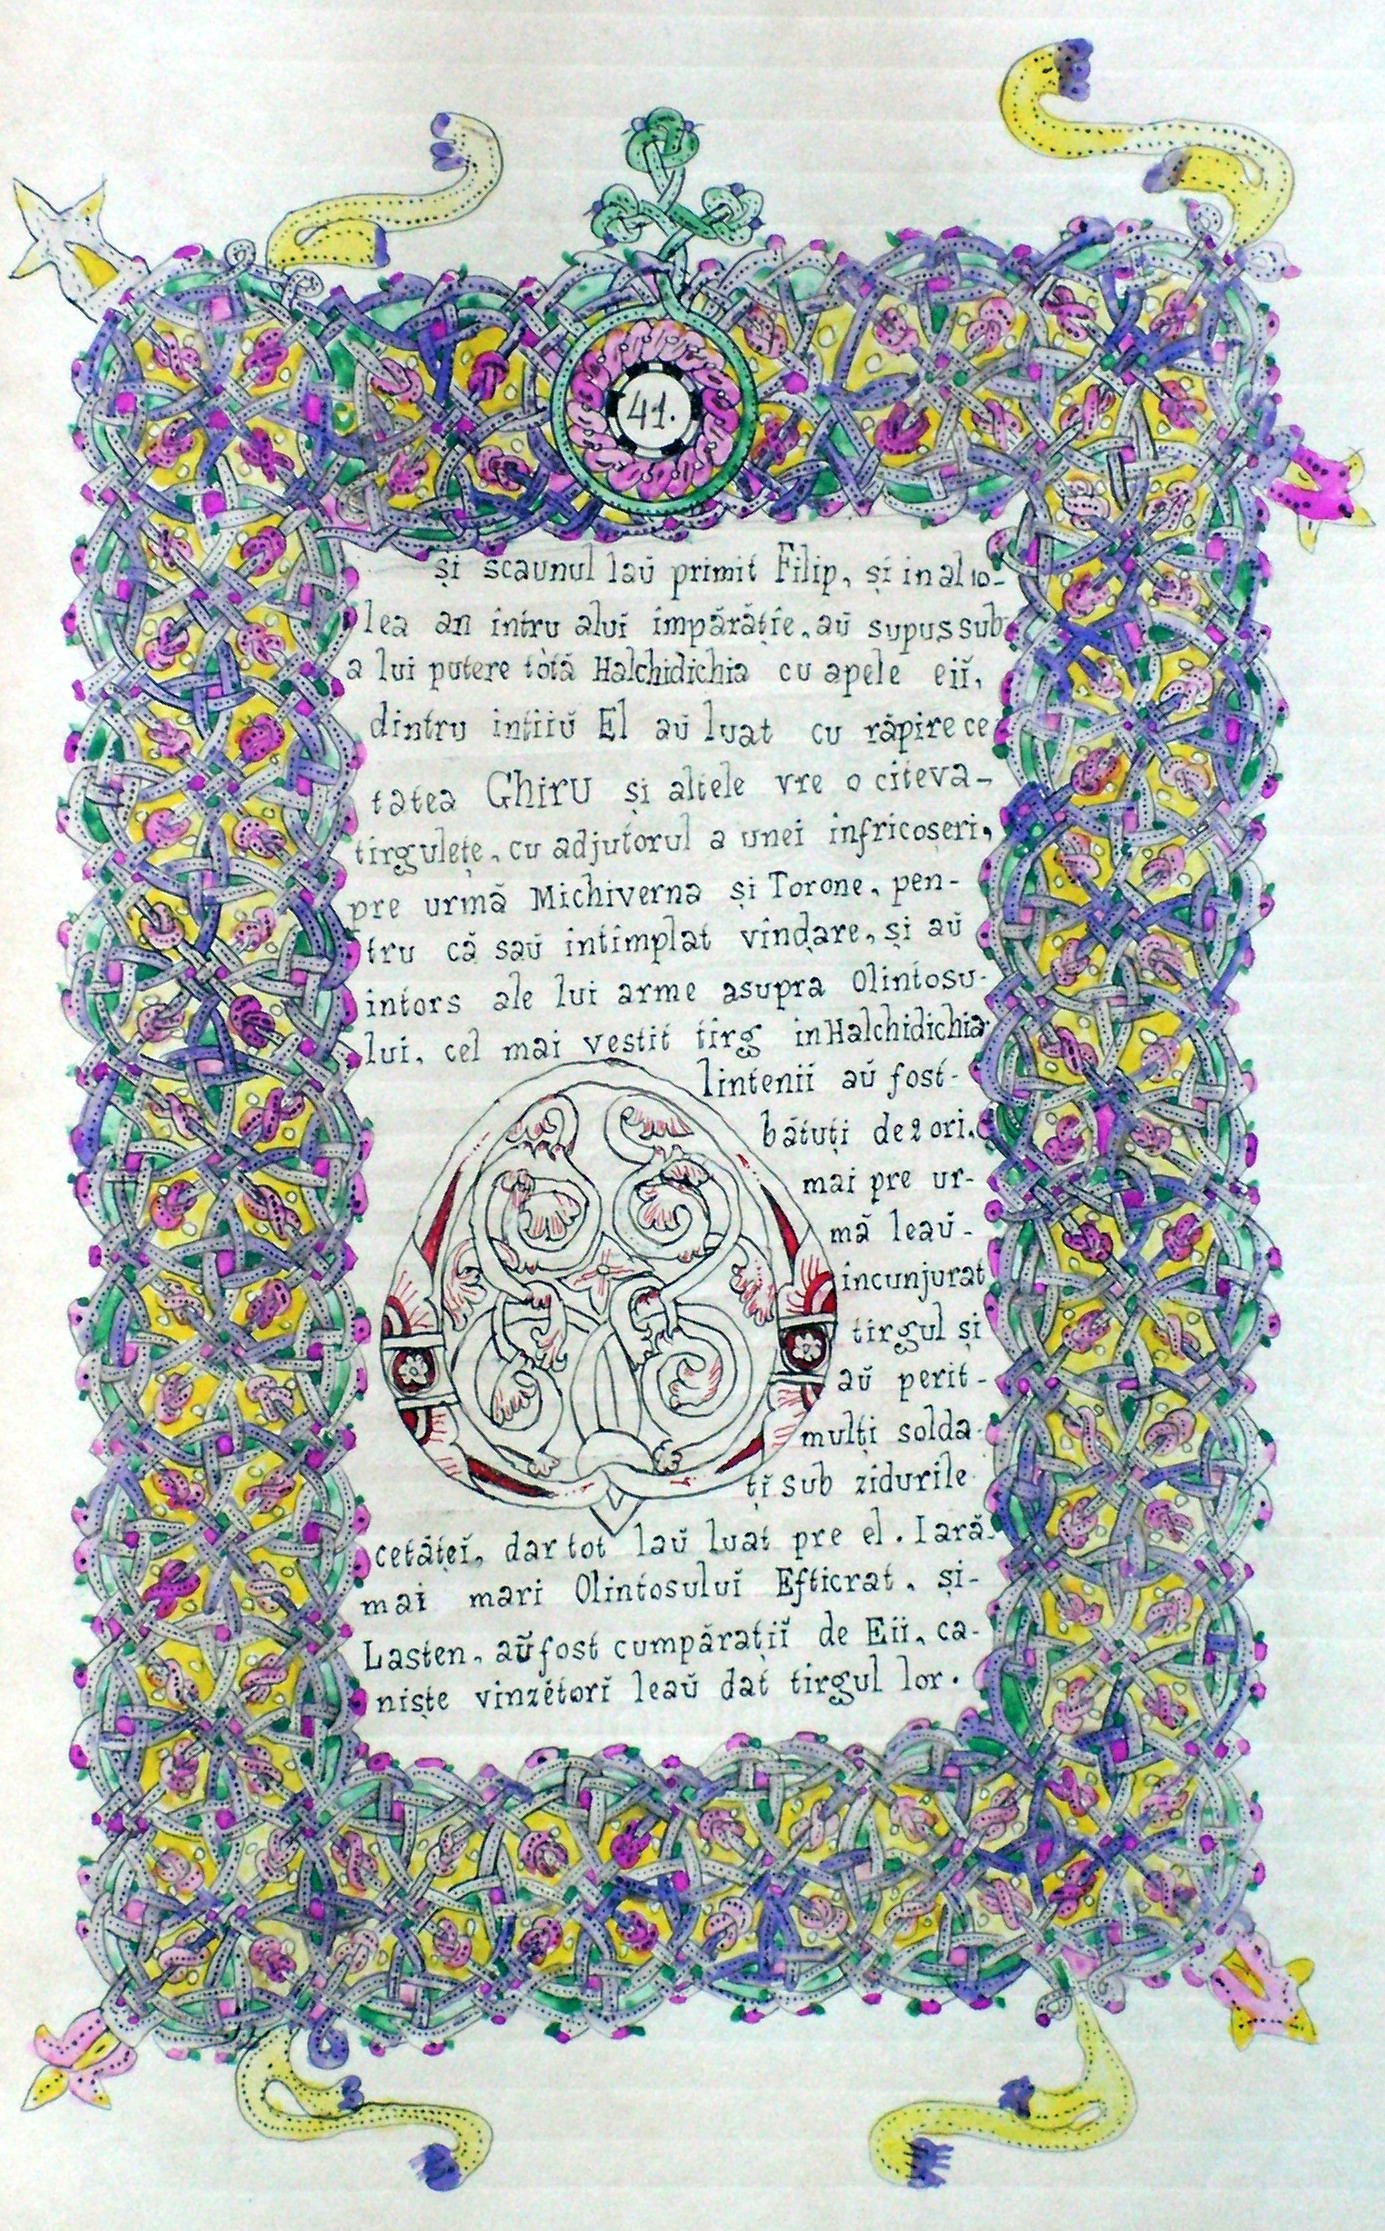 41.
și scaunul laŭ primit Filip, și in al 10-
lea an intru aluĭ impărăție, aŭ supus sub
a lui putere tòtă Halchidichia cu apele eiĭ,
dintru intiiŭ El aŭ luat cu răpire ce
tatea Ghiru și altele vre o citeva-
tirgulețe, cu adjutorul a unei infricoșeri,
pre urmă Michiverna și Torone, pen-
tru că saŭ intimplat vindare, și aŭ
intors ale lui arme asupra Olintosu-
lui, cel mai vestit tirg in Halchidichia
O
lintenii aŭ fost-
bătuți de 2 ori,
mai pre ur-
mă leaŭ-
incunjurat
tirgul și
aŭ perit-
mulți solda-
tĭ sub zidurile
cetățeĭ, dar tot laŭ luat pre el. Iară
mai mari Olintosuluĭ Efticrat, și-
Lasten, aŭ fost cumpărațiĭ de Eii, ca-
niște vinzĕtorĭ leaŭ dat tirgul lor.